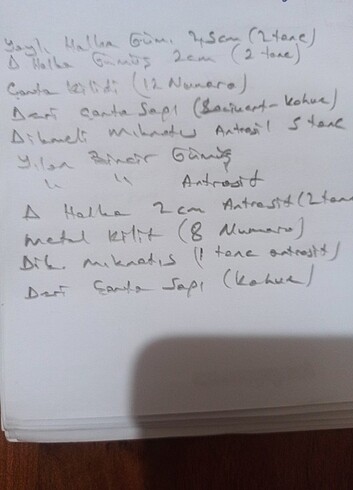 Yaylı Halka Gümüş 2,5cm (2 tane)
Δ Halka Gümüş 2cm (2 tane)
Çanta Kilidi (12 Numara)
Deri Çanta Sapı (Lacivert-Kahve)
Dikmeli Mıknatıs Antrasit 5 tane
Yılan Zincir Gümüş
" " Antrasit
Δ Halka 2cm Antrasit (2 tane
Metal Kilit (8 Numara)
Dik. Mıknatıs (1 tane antrasit)
Deri Çanta Sapı (Kahve)